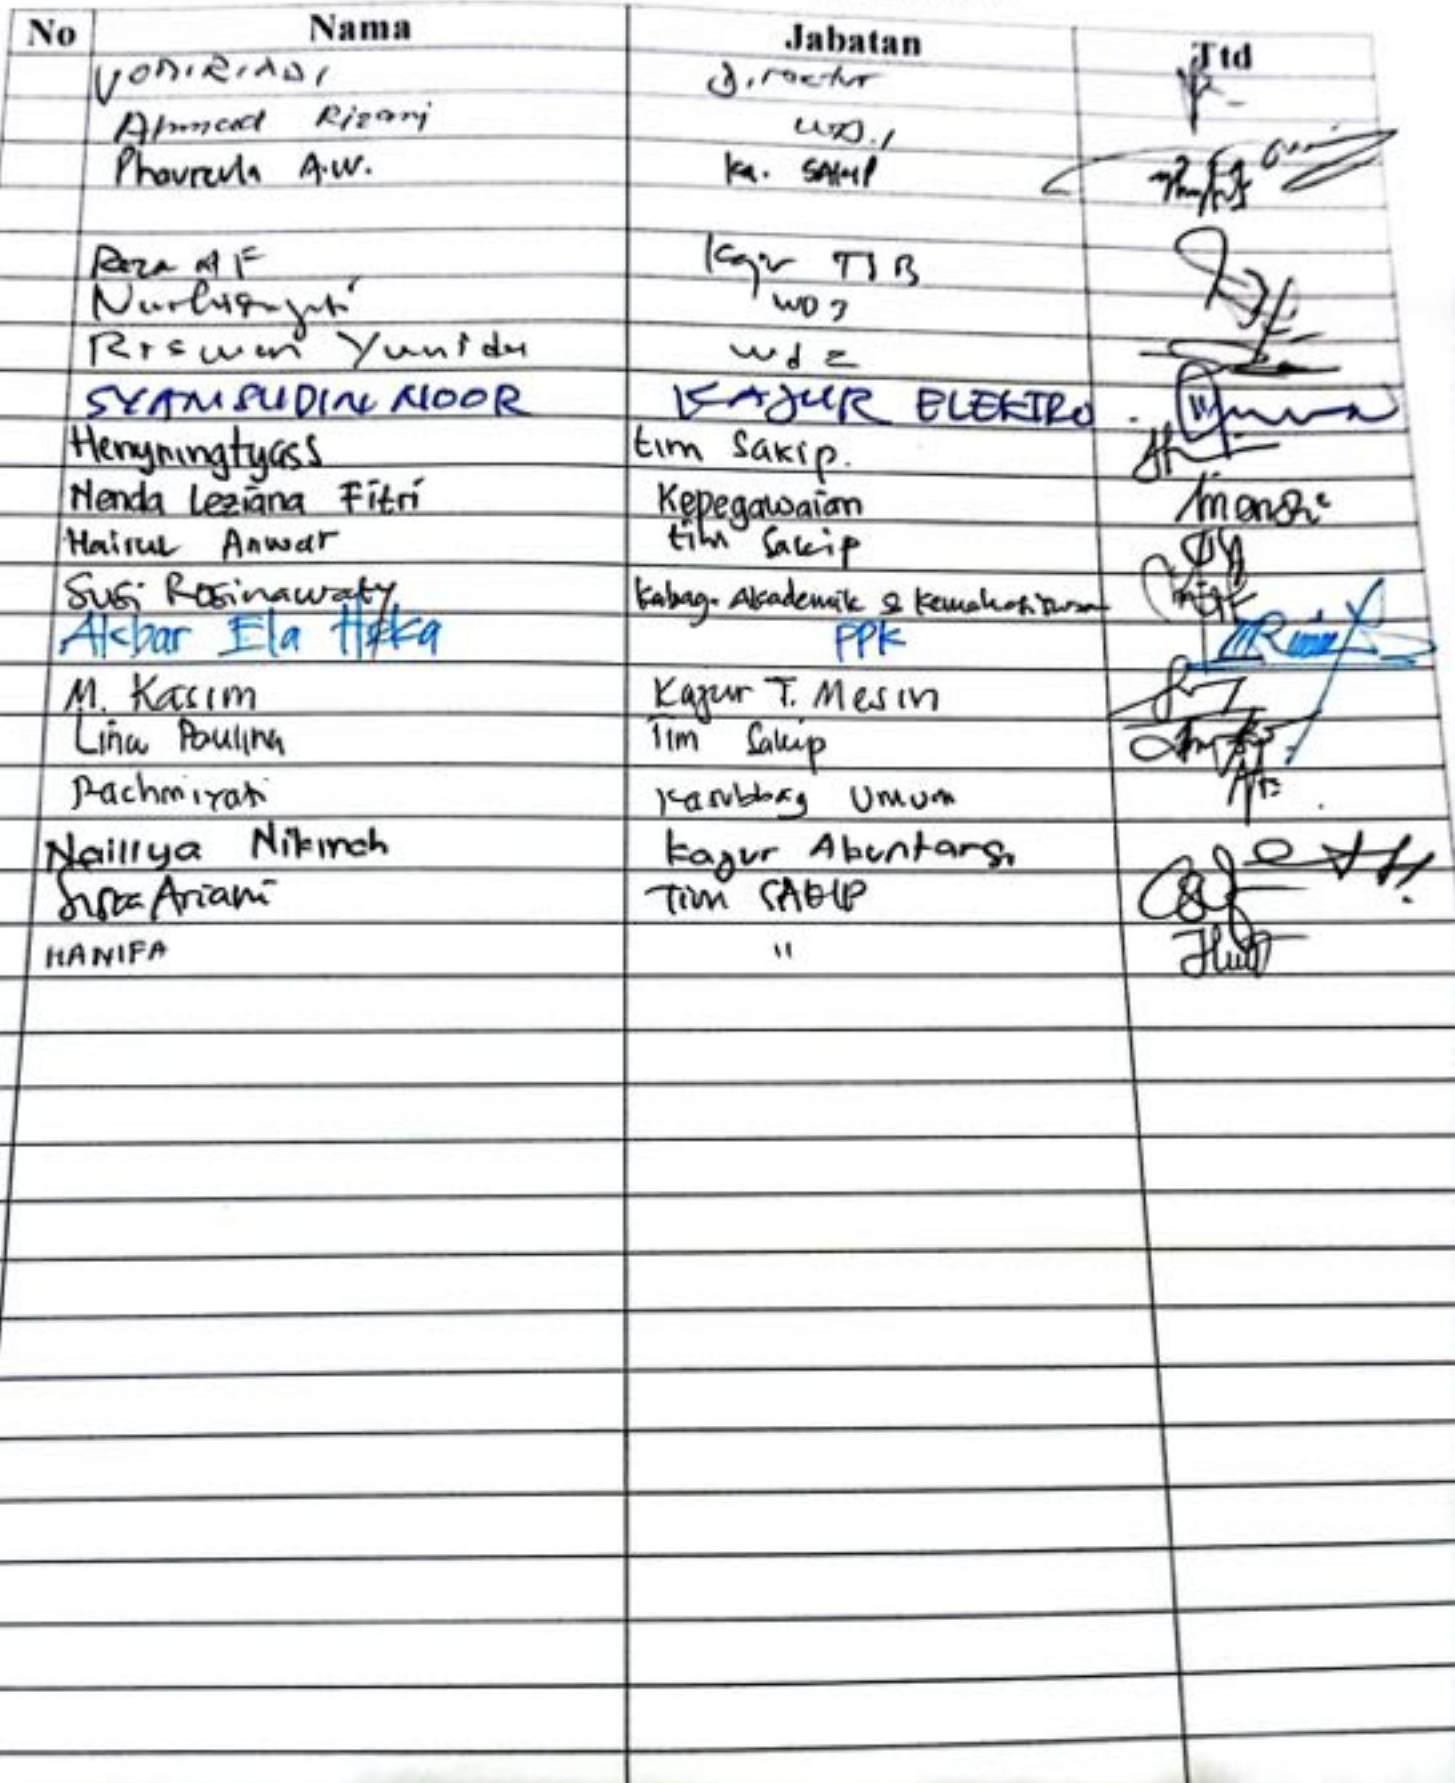 No Nama Jabatan Ttd
YONIRIADI Director
Ahmad Rizani WD.1
Phoureula A.W. Ka. SAKIP
Reza A F Kajur TSB
Nurhidayati WD3
Riswan Yunida Wd 2
SYAMSUDIN NOOR KAJUR ELEKTRO
Henyningtyass tim Sakip.
Nenda Leziana Fitri Kepegawaian
Hairul Anwar tim Sakip
Susi Rosinawaty Kabag. Akademik & Kemahasiswaan
Akbar Ela Heka PPK
M. Kasim Kajur T. Mesin
Lina Paulina Tim Sakip
Rachmiyati Kasubbag Umum
Naillya Nikmah Kajur Akuntansi
Ariani Tim SAKIP
HANIFA "